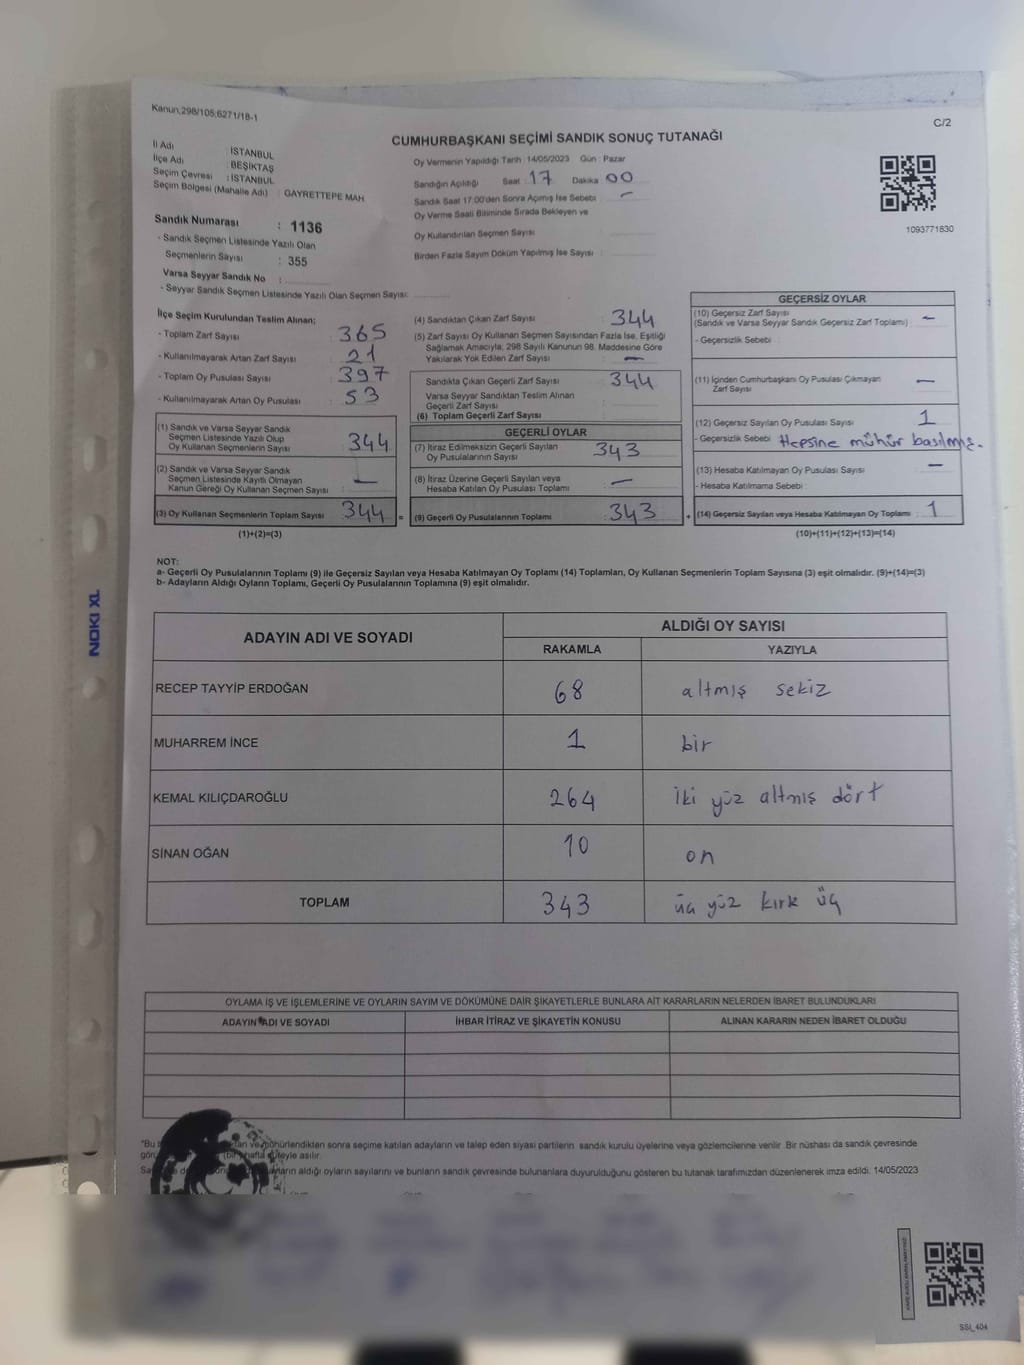 Kanun,298/105;6271/18-1
C/2
CUMHURBAŞKANI SEÇİMİ SANDIK SONUÇ TUTANAĞI
İl Adı : İSTANBUL
İlçe Adı : BEŞİKTAŞ
Seçim Çevresi : İSTANBUL
Seçim Bölgesi (Mahalle Adı) : GAYRETTEPE MAH
Oy Vermenin Yapıldığı Tarih : 14/05/2023 Gün : Pazar
Sandığın Açıldığı Saat : 17 Dakika 00
Sandık Saat 17:00'den Sonra Açılmış İse Sebebi : —
Oy Verme Saati Bitiminde Sırada Bekleyen ve
Oy Kullandırılan Seçmen Sayısı :
Birden Fazla Sayım Döküm Yapılmış İse Sayısı :
1093771830
Sandık Numarası : 1136
- Sandık Seçmen Listesinde Yazılı Olan
Seçmenlerin Sayısı : 355
Varsa Seyyar Sandık No :
- Seyyar Sandık Seçmen Listesinde Yazılı Olan Seçmen Sayısı:
İlçe Seçim Kurulundan Teslim Alınan;
- Toplam Zarf Sayısı : 365
- Kullanılmayarak Artan Zarf Sayısı : 21
- Toplam Oy Pusulası Sayısı : 397
- Kullanılmayarak Artan Oy Pusulası : 53
(1) Sandık ve Varsa Seyyar Sandık
Seçmen Listesinde Yazılı Olup
Oy Kullanan Seçmenlerin Sayısı : 344
(2) Sandık ve Varsa Seyyar Sandık
Seçmen Listesinde Kayıtlı Olmayan
Kanun Gereği Oy Kullanan Seçmen Sayısı : —
(3) Oy Kullanan Seçmenlerin Toplam Sayısı : 344 =
(1)+(2)=(3)
(4) Sandıktan Çıkan Zarf Sayısı : 344
(5) Zarf Sayısı Oy Kullanan Seçmen Sayısından Fazla İse, Eşitliği
Sağlamak Amacıyla; 298 Sayılı Kanunun 98. Maddesine Göre
Yakılarak Yok Edilen Zarf Sayısı : —
Sandıkta Çıkan Geçerli Zarf Sayısı : 344
Varsa Seyyar Sandıktan Teslim Alınan
Geçerli Zarf Sayısı :
(6) Toplam Geçerli Zarf Sayısı :
GEÇERLİ OYLAR
(7) İtiraz Edilmeksizin Geçerli Sayılan
Oy Pusulalarının Sayısı : 343
(8) İtiraz Üzerine Geçerli Sayılan veya
Hesaba Katılan Oy Pusulası Toplamı : —
(9) Geçerli Oy Pusulalarının Toplamı : 343 +
GEÇERSİZ OYLAR
(10) Geçersiz Zarf Sayısı
(Sandık ve Varsa Seyyar Sandık Geçersiz Zarf Toplamı) : —
- Geçersizlik Sebebi :
(11) İçinden Cumhurbaşkanı Oy Pusulası Çıkmayan
Zarf Sayısı : —
(12) Geçersiz Sayılan Oy Pusulası Sayısı : 1
- Geçersizlik Sebebi : Hepsine mühür basılmış.
(13) Hesaba Katılmayan Oy Pusulası Sayısı : —
- Hesaba Katılmama Sebebi :
(14) Geçersiz Sayılan veya Hesaba Katılmayan Oy Toplamı : 1
(10)+(11)+(12)+(13)=(14)
NOT:
a- Geçerli Oy Pusulalarının Toplamı (9) ile Geçersiz Sayılan veya Hesaba Katılmayan Oy Toplamı (14) Toplamları, Oy Kullanan Seçmenlerin Toplam Sayısına (3) eşit olmalıdır. (9)+(14)=(3)
b- Adayların Aldığı Oyların Toplamı, Geçerli Oy Pusulalarının Toplamına (9) eşit olmalıdır.
ADAYIN ADI VE SOYADI
ALDIĞI OY SAYISI
RAKAMLA YAZIYLA
RECEP TAYYİP ERDOĞAN 68 altmış sekiz
MUHARREM İNCE 1 bir
KEMAL KILIÇDAROĞLU 264 iki yüz altmış dört
SİNAN OĞAN 10 on
TOPLAM 343 üç yüz kırk üç
OYLAMA İŞ VE İŞLEMLERİNE VE OYLARIN SAYIM VE DÖKÜMÜNE DAİR ŞİKAYETLERLE BUNLARA AİT KARARLARIN NELERDEN İBARET BULUNDUKLARI
ADAYIN ADI VE SOYADI İHBAR İTİRAZ VE ŞİKAYETİN KONUSU ALINAN KARARIN NEDEN İBARET OLDUĞU
"Bu ve mühürlendikten sonra seçime katılan adayların ve talep eden siyasi partilerin sandık kurulu üyelerine veya gözlemcilerine verilir. Bir nüshası da sandık çevresinde
(bir) hafta süreyle asılır.
aldığı oyların sayılarını ve bunların sandık çevresinde bulunanlara duyurulduğunu gösteren bu tutanak tarafımızdan düzenlenerek imza edildi. 14/05/2023
NOKI XL
SSI_404